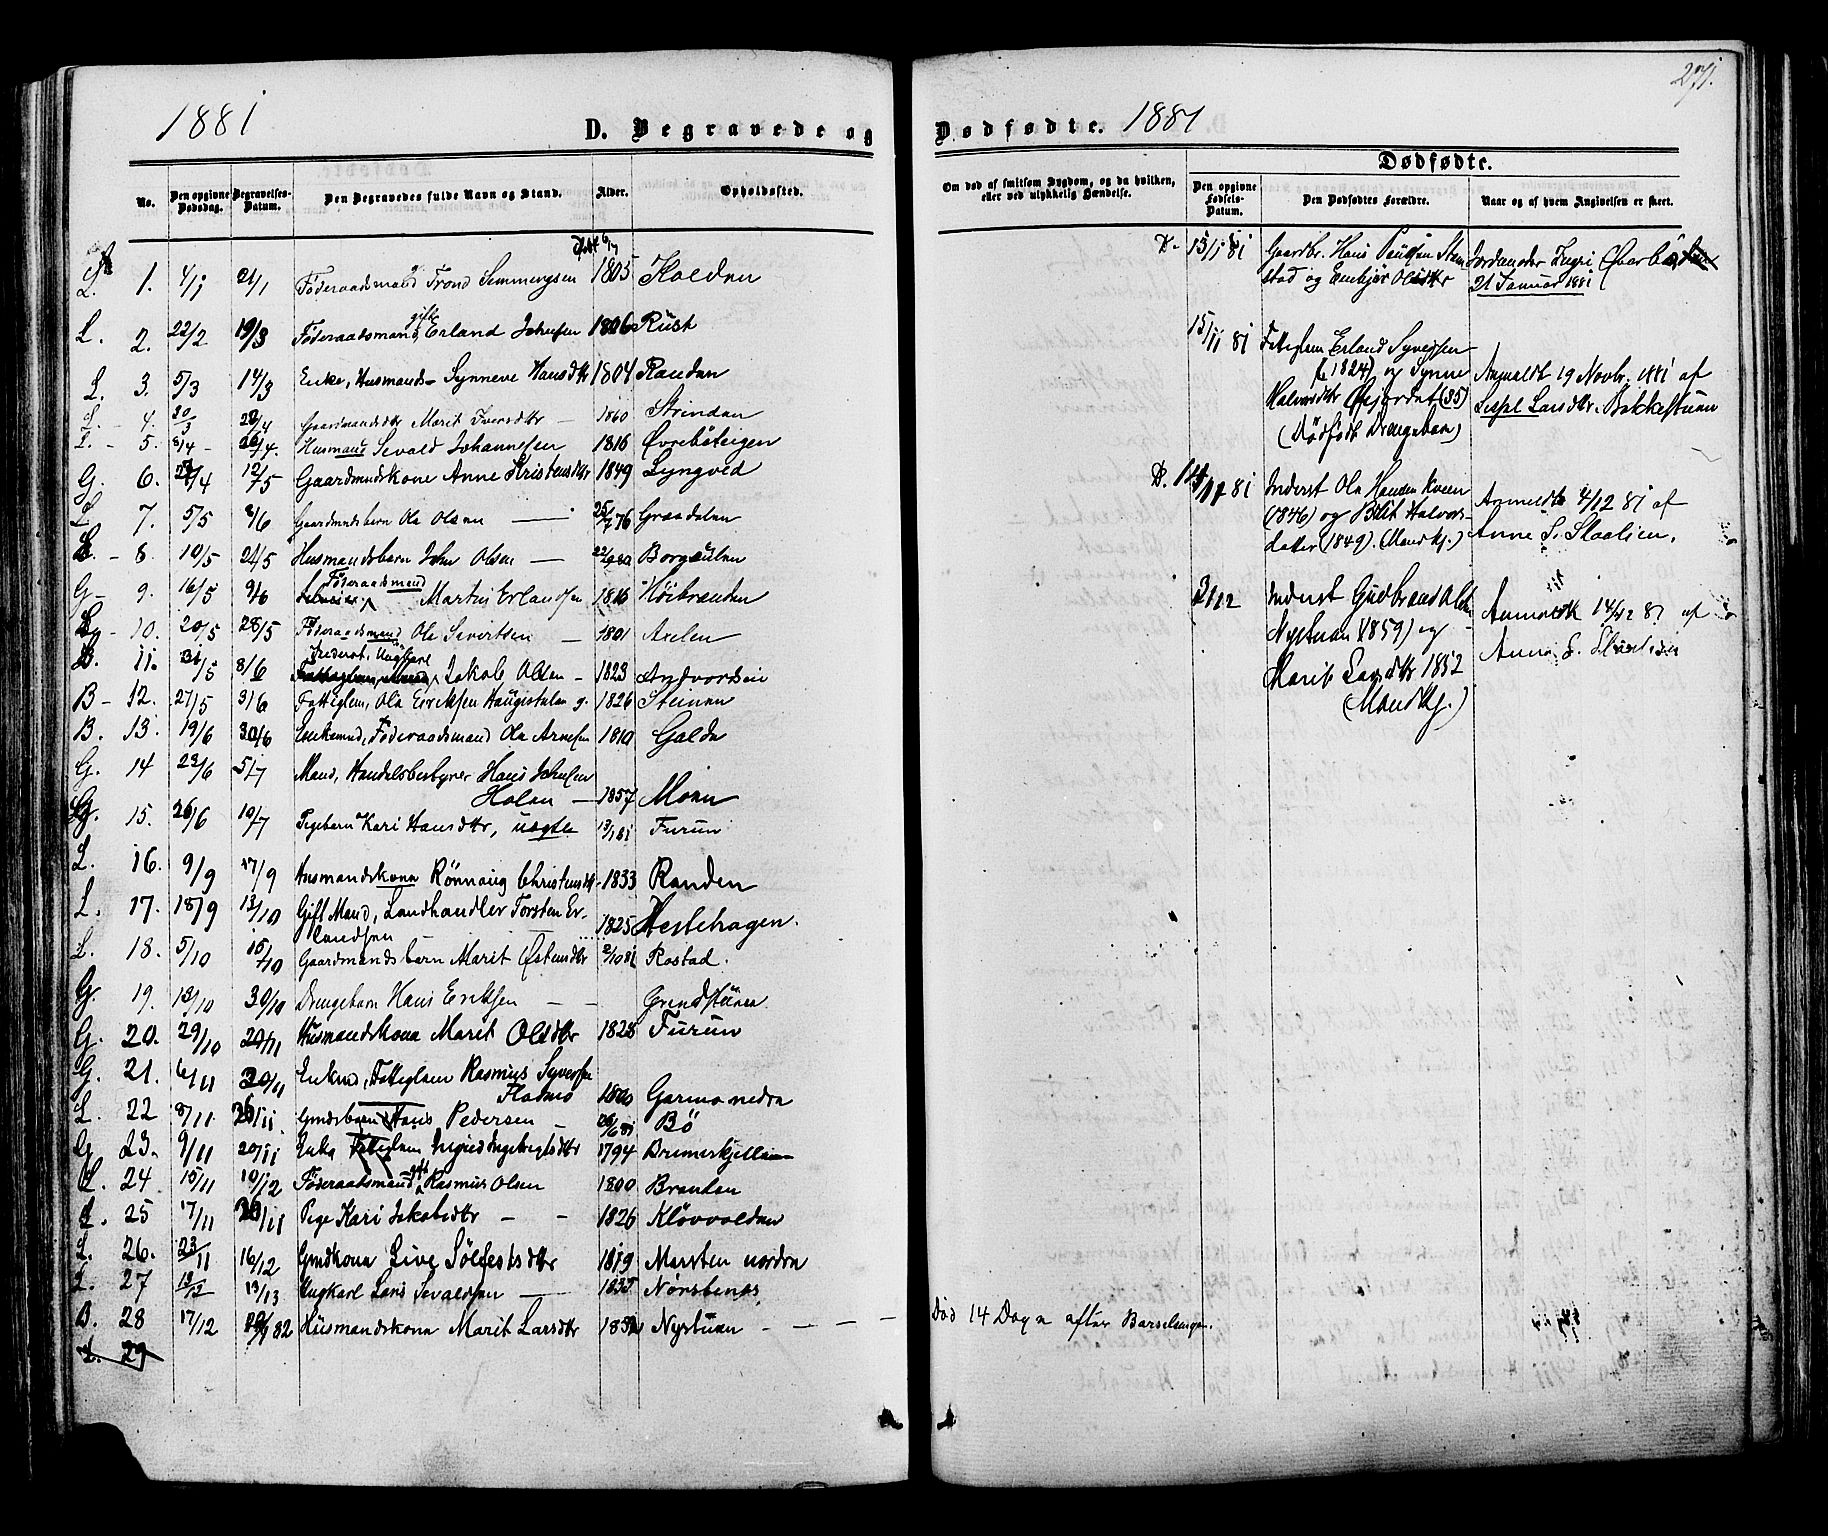 271.
1881
D. Begravede og
Dødfødte. 1881
No. Den opgivne Dødsdag. Begravelses-Datum. Den Begravedes fulde Navn og Stand. Alder. Opholdssted.
L. 1. 4/1 21/1 Føderaadsmand Trond Simmengsen født 6/4 1805 Kolden
L. 2. 22/2 19/3 Føderaadsmand, gift Erland Johnsen 1806 Rust
L. 3. 5/3 14/3 Enke, Husmands- Synneve Hansdtr 1804 Randen
L. - 4. 30/3 28/4 Gaardmandsdtr Marit Iversdtr - 1860 Strindan
L. - 5. 8/4 - 26/4. Husmand Sevald Johannesen 1816 Øvrebøteigen
G. 6. 27/4 12/5 Gaardmndskone Anne Kristensdtr 1849 Lyngved
L 7. 5/5 8/6 Gaardmndsbarn Ola Olsen - 25/7 76 Graadalen
L. - 8. 10/5 24/5 Husmandsbarn John Olsen - 22/9 80 Borgeulen
G - 9. 16/5 9/6 Føderaadsmand Martin Erlandsen 1816 Høibranden
L. - 10. 20/5 28/5 Føderaadsmand Ole Sivertsen - 1801 Axelen
B. 11. 31/5 8/6 Inderst, Ungkarl Jakob Olsen - 1823 Andvordsvei
B - 12. 27/5 3/6 Fattiglem, Ola Eriksen Haugistulen g. 1826 Steinan
B. 13. 19/6 30/6 Enkemnd, Føderaadsmand Ola Arnesen 1810 Galde
G. 14 23/6 5/7 Mand, Handelsbestyrer Hans Johnsen
Holen - 1857 Moen
G. 15. 26/6 10/7 Pigebarn Kari Hansdtr, uægte 13/1 81 Furun
L. 16. 9/9 17/9 Husmandskona Rønnaug Christensdtr - 1833 Randen
L. 17. 18/9 13/10 Gift Mand, Landhandler Torsten Er-
landsen 1825 Hestehagen.
L. 18. 5/10 15/10 Gaardmandsbarn Marit Østensdtr 2/10 81 Rostad.
G. 19. 13/10 30/10 Drengebarn Hans Eriksen - - Grindstuen
G. 20. 29/10 20/11 Husmandskona Marit Olsdtr 1828 Furun
G. 21. 6/11 20/11 Enkmd, Fattiglem Rasmus Syversen
Flatmo 1800 Garmo nedra
L. 22 8/11 26/11. Gmdsbarn Hans Pedersen - 26/6 81 Bø
G 23. 9/11 20/11 Enke Fattiglem Ingrid Ingebrigtsdtr 1794 Brimiskjellen
L. 24 15/11 10/12 Føderaadsmand, gift Rasmus Olsen 1800 Brandan
L. 25 17/11 26/11 Pige Kari Jakobsdtr - - 1826 Kløvvolden
L. 26. 23/11 16/12 Gmdkona Live Sølfestsdtr 1819 Marsten nordra
L. 27 13/12 13/13 Ungkarl Lars Sevaldsen - 1835 Nørstenæs
B. 28 17/12 82 Husmandskona Marit Larsdtr 1852 Nystuan - - - -
L. 29
Om død af smitsom Sygdom, og da hvilken, eller ved ulykkelig Hændelse.
Død 14 Dage after Barselsengen.
Dødfødte.
Den opgivne Fødsels-Datum. Den Dødfødtes Forældre. Naar og af hvem Angivelsen er skeet.
D. 13/1 81 Gaardbr. Hans Poulsen Stam-
stad og Embjør Olsdtr
Jordmoder Ingri Øvrebø
21 Januar 1881
15/11 81 Fattiglem Erland Syversen
(f. 1824) og Synne
Halvorsdtr Øfjordet (35)
(Dødfødt Drengebarn)
Anmeldt 19 Novbr. 1881 af
Lispl Larsdtr. Bakkestuen
D. 81 Inderst Ola Hansen Kveen
(1846) og Brit Halvors-
datter (1849). (Mandkj.)
Anmeldt 4/12 81 af
Anne S. Slaalien.
3/12 Inderst Gudbrand Olsen
Nystuan (1859) og
Marit Larsdtr 1852
(Mandkj.)
Anmeldt 14/12 81 af
Anne S. Slaalien